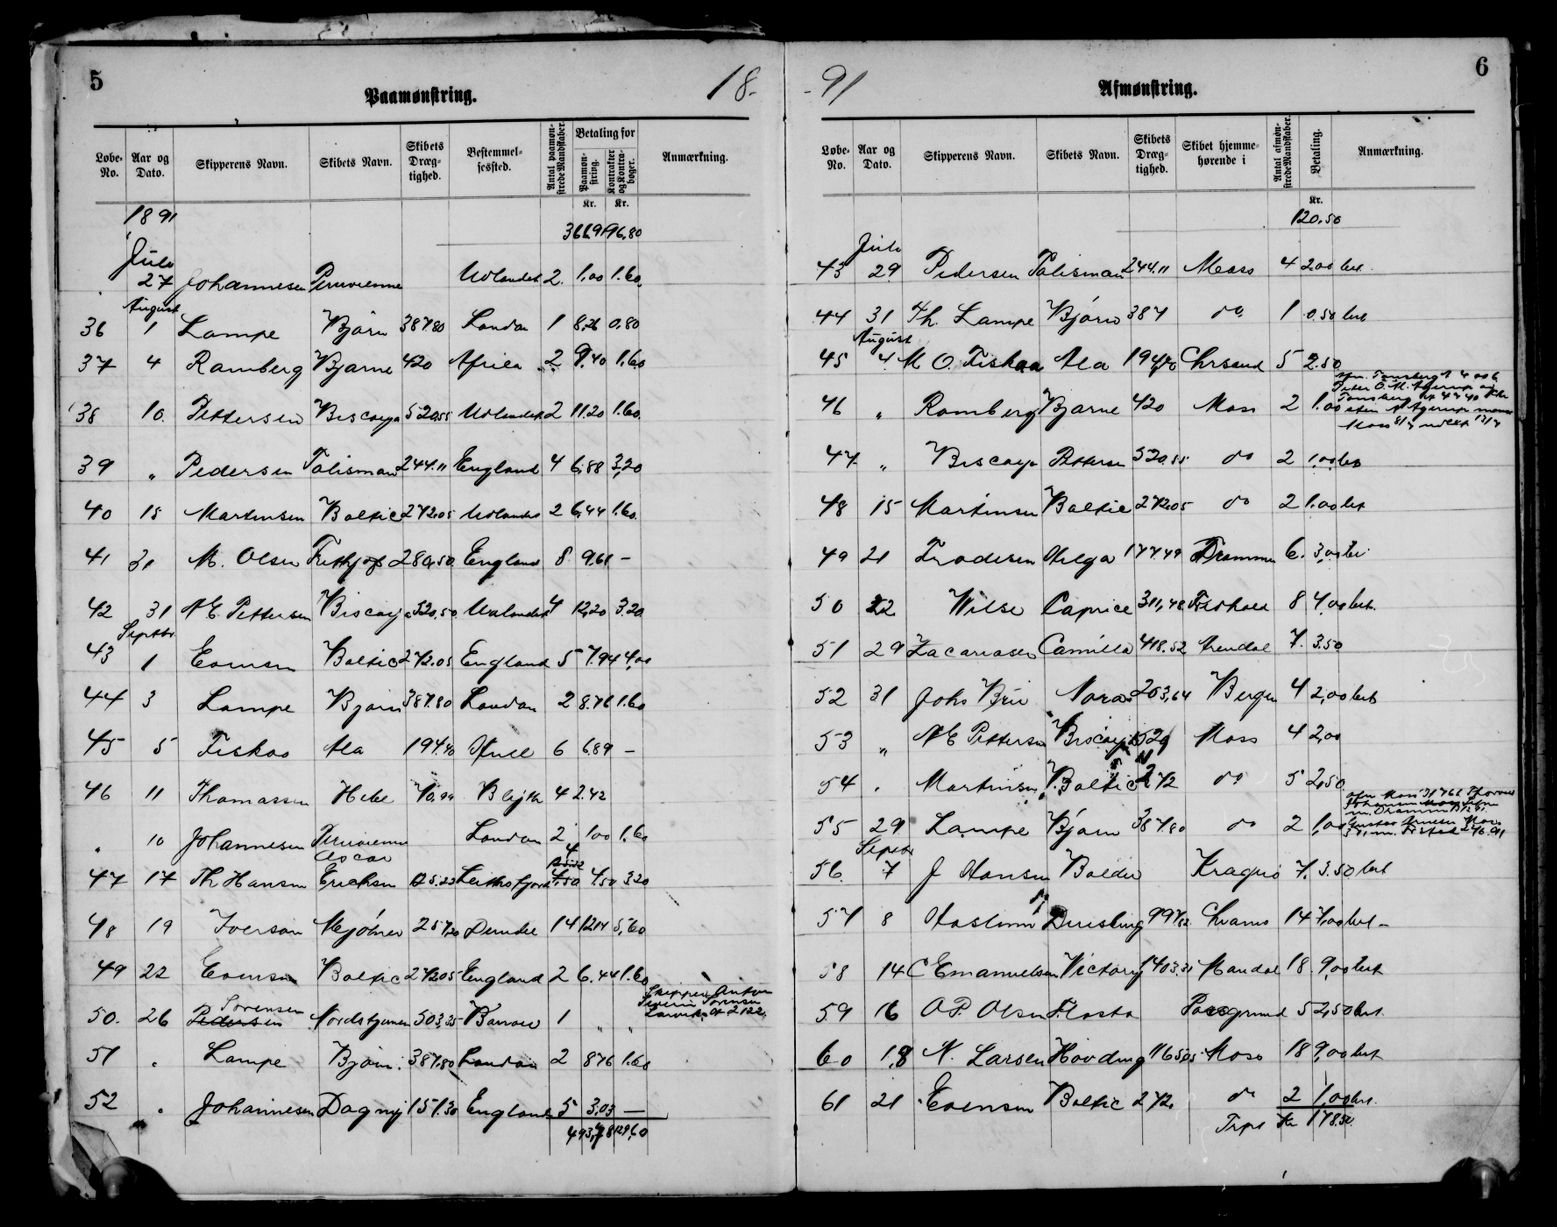 5
Paamønstring.
18
Løbe-No.
Aar og Dato.
Skipperens Navn.
Skibets Navn.
Skibets Dræg-tighed.
Bestemmel-sessted.
Antal paamøn-strede Mandskaber.
Betaling for
Paamøn-string.
Kontrakter og Kontra-bøger.
Anmærkning.
Kr. Kr.
1891
96,80
Juli
27 Johannesen Udlandet 2 1.00 1.60
August
36 1 Lampe Bjørn 387.80 London 1 8.26 0.80
37 4 Ramberg Bjarne 420 2 9.40 1.60
38 10 Pettersen Biscaya 520.55 Udlandet 2 11.20 1.60
39 " Pedersen Talisman 244.11 England 4 6.88 3,20
40 15 Martinsen Baltic 272.05 Udlandet 2 6.44 1.60
41 31 M. Olsen Frithjof 280.50 England 8 9.61 –
42 31 N E Pettersen Biscaya 520,50 Udlandet 4 12,20 3.20
Septbr
43 1 Evensen Baltic 272.05 England 5 7.94 4,00
44 3 Lampe Bjørn 387.80 London 2 8.76 1.60
45 5 Fiskaa Ala 194.40 Hull 6 6.89 –
46 11 Thomassen Hebe 70.99 Blyth 4 2.42
" 10 Johannesen London 2 1.00 1.60
Oscar
47 17 Th Hansen Erichsen 4.50 3.20
48 19 Iversen Mjølner 257.20 Dundee 14 12.14 5,60
49 22 Evensen Baltic 272.05 England 2 6.44 1.60
Skipper Anton
Sorensen
50. 26 Pedersen Nordstjernen 503.35 Barrow 1 " "
51 " Lampe Bjørn 387.80 London 2 8.76 1.60
52 " Johannesen Dagny 157.30 England 5 3.03 –
6
91
Afmønstring.
Løbe-No.
Aar og Dato.
Skipperens Navn.
Skibets Navn.
Skibets Dræg-tighed.
Skibet hjemme-hørende i
Antal afmøn-strede Mandskaber.
Betaling.
Anmærkning.
Kr.
120.50
Juli
43 29 Pedersen Talisman 244.11 Moss 4 2,00 bet.
44 31 Th. Lampe Bjørn 387 do 1 0.50 bet
August
45 4 M O. Fiskaa Ala 194,40 Chrsand 5 2.50
46 " Ramberg Bjarne 420 Moss 2 1.00
47 " Biscaya Pettersen 520.55 do 2 1,00 bet
48 15 Martinsen Baltic 272.05 do 2 1.00 bet
49 21 Frodesen Helga 177.49 Drammen 6 3,00 bet
50 22 Wilse Caprice 311,48 8 4,00 bet.
51 29 Zacariasen Camilla 418.52 Arendal 7 3.50
52 31 Johs Bru Nora 203,64 Bergen 4 2,00 bet
53 " N E Pettersen Biscaya 520 Moss 4 2,00
54 " Martinsen Baltic 272 do 5 2,50
55 29 Lampe Bjørn 387.80 do 2 1,00
Septbr
56 7 J Hansen Balder Kragerø 7 3.50 bet
57 8 997.82 14 7,00 bet
58 14 C Emanuelsen Victory 1403.31 Mandal 18 9,00 bet
59 16 O P. Olsen Flosta Porsgrund 5 2,50 bet.
60 18 N. Larsen Høvding 1165.05 Moss 18 9,00 bet
61 21 Evensen Baltic 272. do 2 1,00 bet.
Trps Kr 178.50